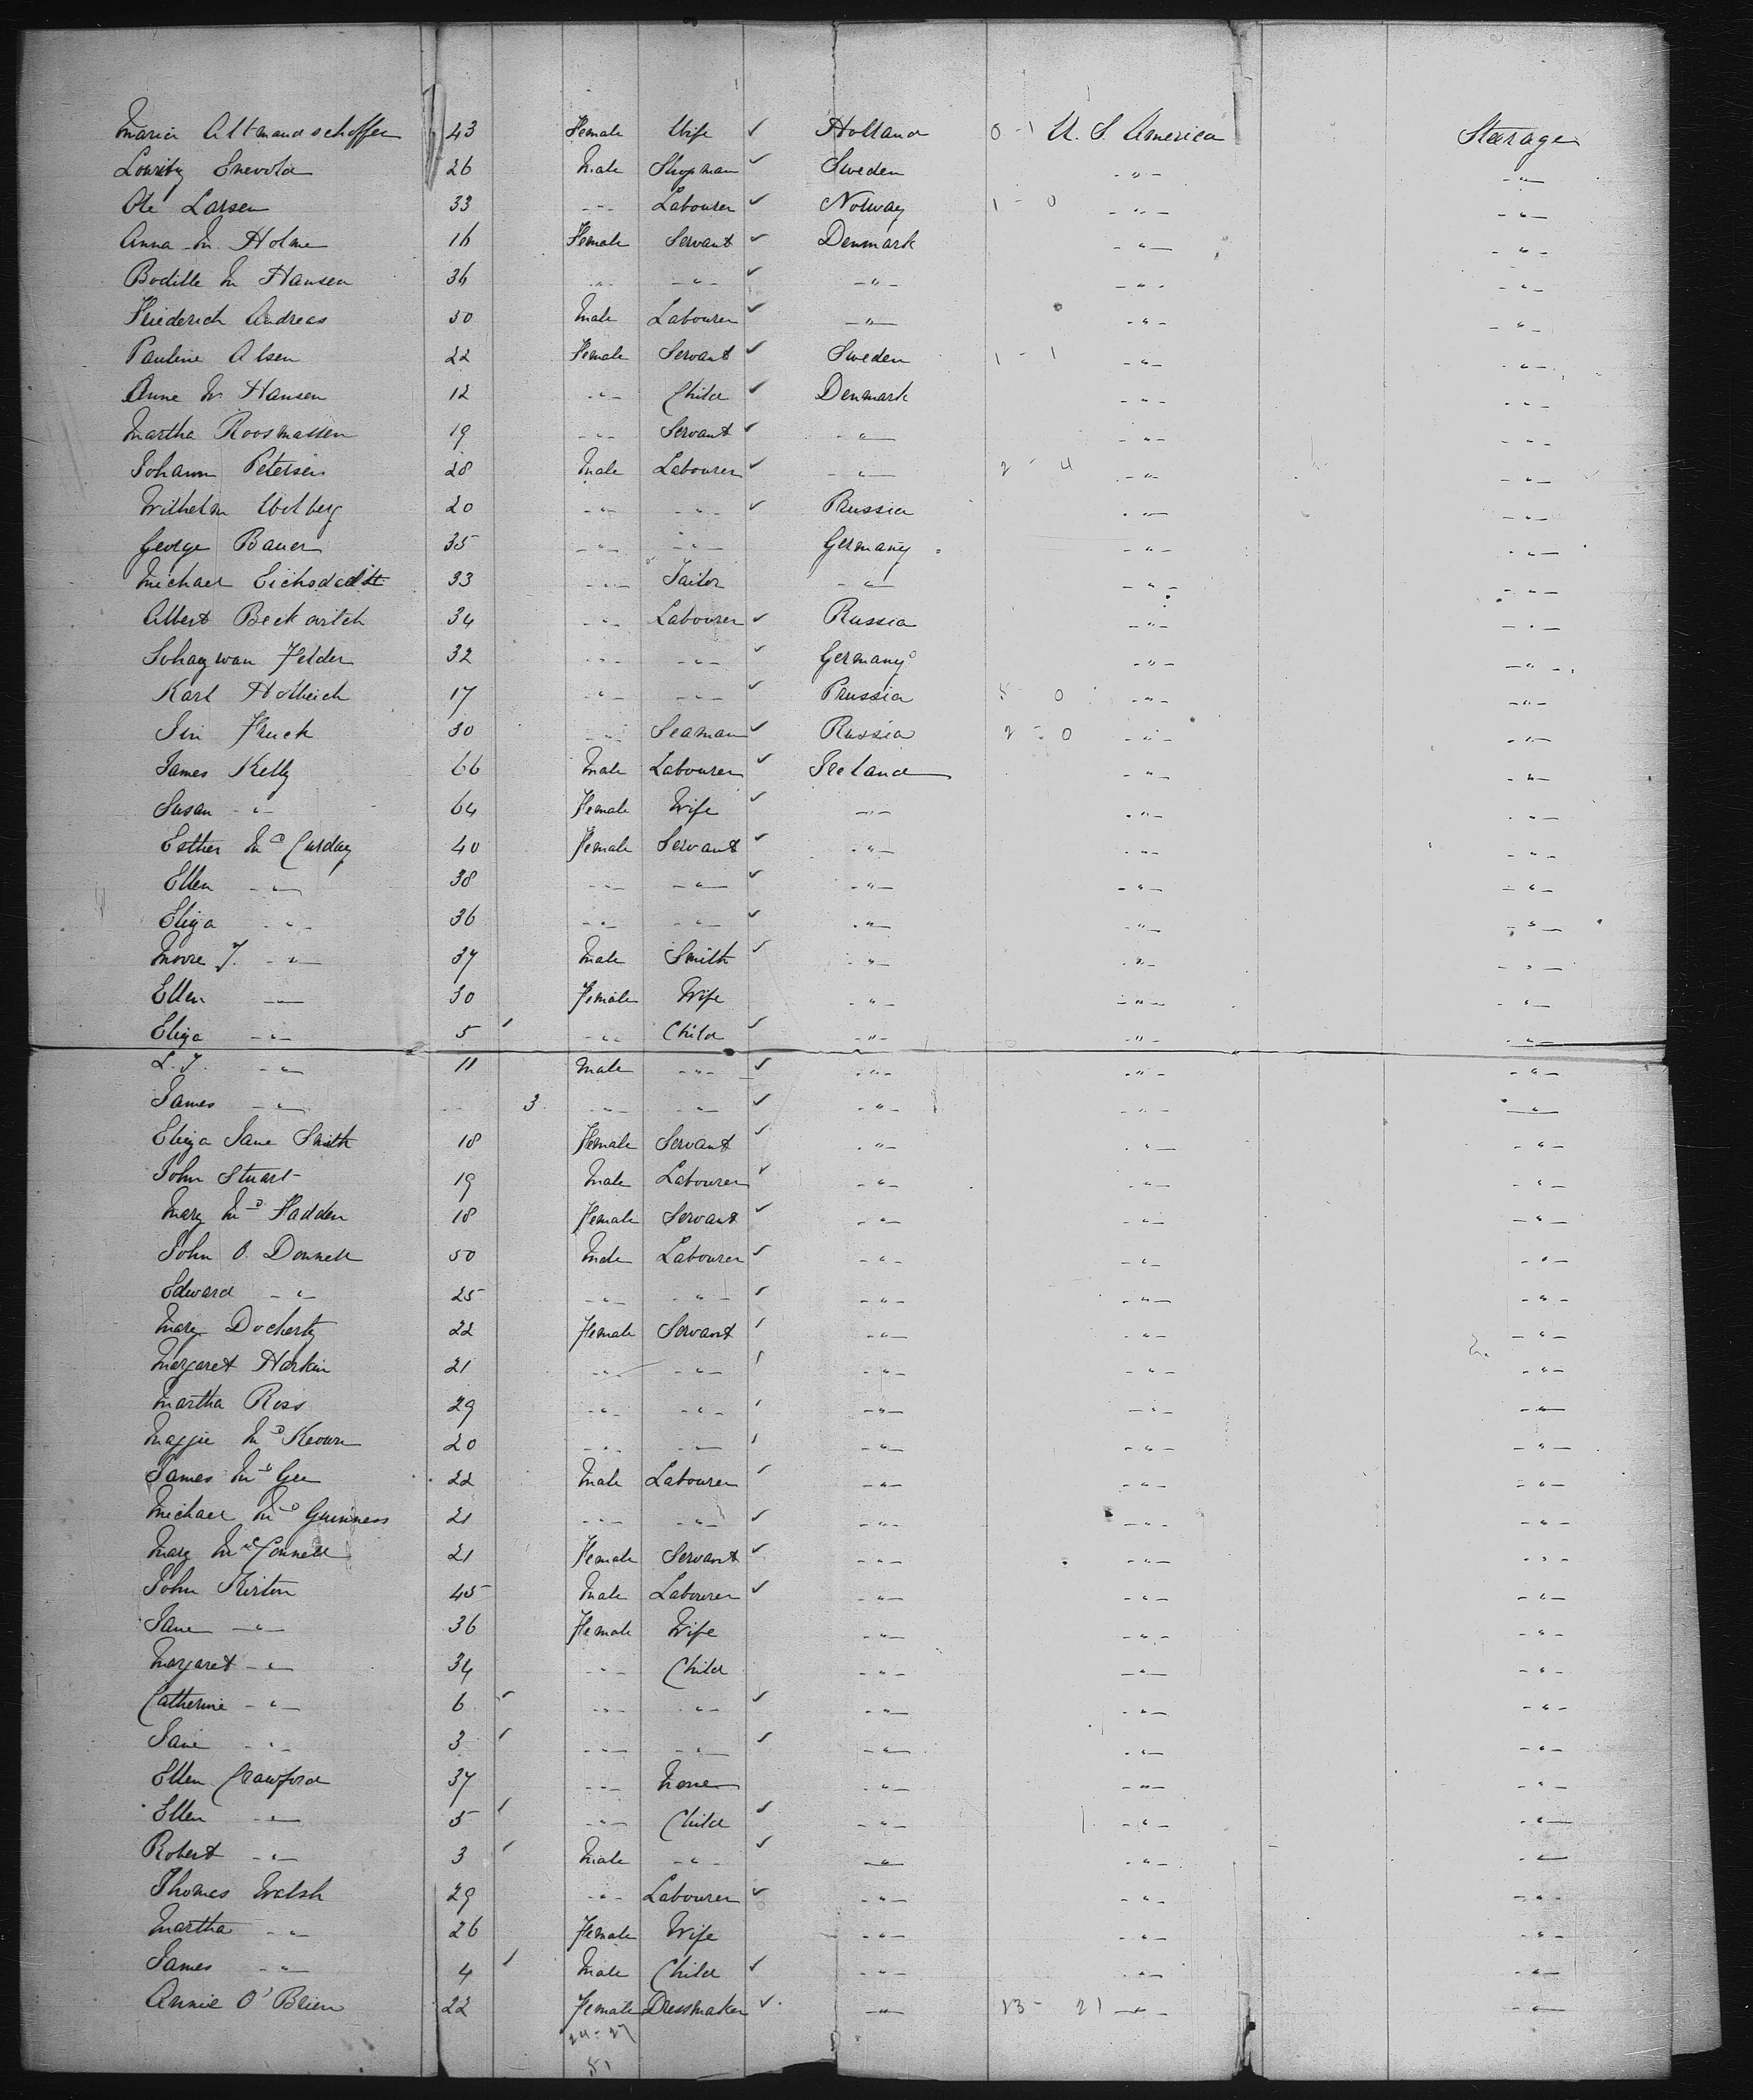 Maria Altmandschoffer 43 Female Wife ✓ Holland 0 - 1 U. S America Steerage
Enevold 26 Male Shopman ✓ Sweden - " - - " -
Ole Larsen 33 - " - Labourer ✓ Norway 1 - 0 - " - - " -
Anna M Holme 16 Female Servant ✓ Denmark - " - - " -
Bodille M Hansen 36 - " - - " - ✓ - " - - " - - " -
Friederich Andreas 30 Male Labourer ✓ - " - - " - - " -
Pauline Olsen 22 Female Servant ✓ Sweden 1 - 1 - " - - " -
Anne M Hansen 12 - " - Child ✓ Denmark - " - - " -
Martha Roosmassen 19 - " - Servant ✓ - " - - " - - " -
Johann Petersen 28 Male Labourer ✓ - " - 2 - 4 - " - - " -
Wilhelm Wolberg 20 - " - - " - ✓ Prussia - " - - " -
George Bauer 35 - " - - " - Germany - " - - " -
Michael 33 - " - Tailor - " - - " - - " -
Albert Beckavitch 34 - " - Labourer ✓ Russia - " - - " -
Felder 32 - " - - " - ✓ Germany - " - - " -
Karl 17 - " - - " - ✓ Prussia 5 - 0 - " - - " -
30 - " - Seaman ✓ Russia 2 - 0 - " - - " -
James Kelly 66 Male Labourer ✓ Ireland - " - - " -
Susan - " - 64 Female Wife ✓ - " - - " - - " -
Esther Mc Curday 40 Female Servant ✓ - " - - " - - " -
Ellen - " - 38 - " - - " - ✓ - " - - " - - " -
Eliza - " - 36 - " - - " - ✓ - " - - " - - " -
Moore J. - " - 37 Male Smith ✓ - " - - " - - " -
Ellen - " - 30 Female Wife - " - - " - - " -
Eliza - " - 5 ✓ - " - Child ✓ - " - - " - - " -
L. J. - " - 11 Male - " - ✓ - " - - " - - " -
James - " - 3 - " - - " - ✓ - " - - " - - " -
Eliza Jane Smith 18 Female Servant ✓ - " - - " - - " -
John Stuart 19 Male Labourer ✓ - " - - " - - " -
Mary Mc Fadden 18 Female Servant ✓ - " - - " - - " -
John O. Donnell 50 Male Labourer ✓ - " - - " - - " -
Edward - " - 25 - " - - " - ✓ - " - - " - - " -
Mary Docherty 22 Female Servant ✓ - " - - " - - " -
Margaret Harkin 21 - " - - " - ✓ - " - - " - - " -
Martha Ross 29 - " - - " - ✓ - " - - " - - " -
Maggie Mc Keown 20 - " - - " - ✓ - " - - " - - " -
James Mc Gee 22 Male Labourer ✓ - " - - " - - " -
Michael Mc Guinness 21 - " - - " - ✓ - " - - " - - " -
Mary Mc Connell 21 Female Servant ✓ - " - - " - - " -
John Kirton 45 Male Labourer ✓ - " - - " - - " -
Jane - " - 36 Female Wife - " - - " - - " -
Margaret - " - 34 - " - Child - " - - " - - " -
Catherine - " - 6 ✓ - " - - " - ✓ - " - - " - - " -
Jane - " - 3 ✓ - " - - " - ✓ - " - - " - - " -
Ellen Crawford 37 - " - None - " - - " - - " -
Ellen - " - 5 ✓ - " - Child ✓ - " - - " - - " -
Robert - " - 3 ✓ Male - " - ✓ - " - - " - - " -
Thomas Walsh 29 - " - Labourer ✓ - " - - " - - " -
Martha - " - 26 Female Wife - " - - " - - " -
James - " - 4 ✓ Male Child ✓ - " - - " - - " -
Annie O'Brien 22 Female Dressmaker ✓ - " - 23 - 21 - " - - " -
24 - 27
51